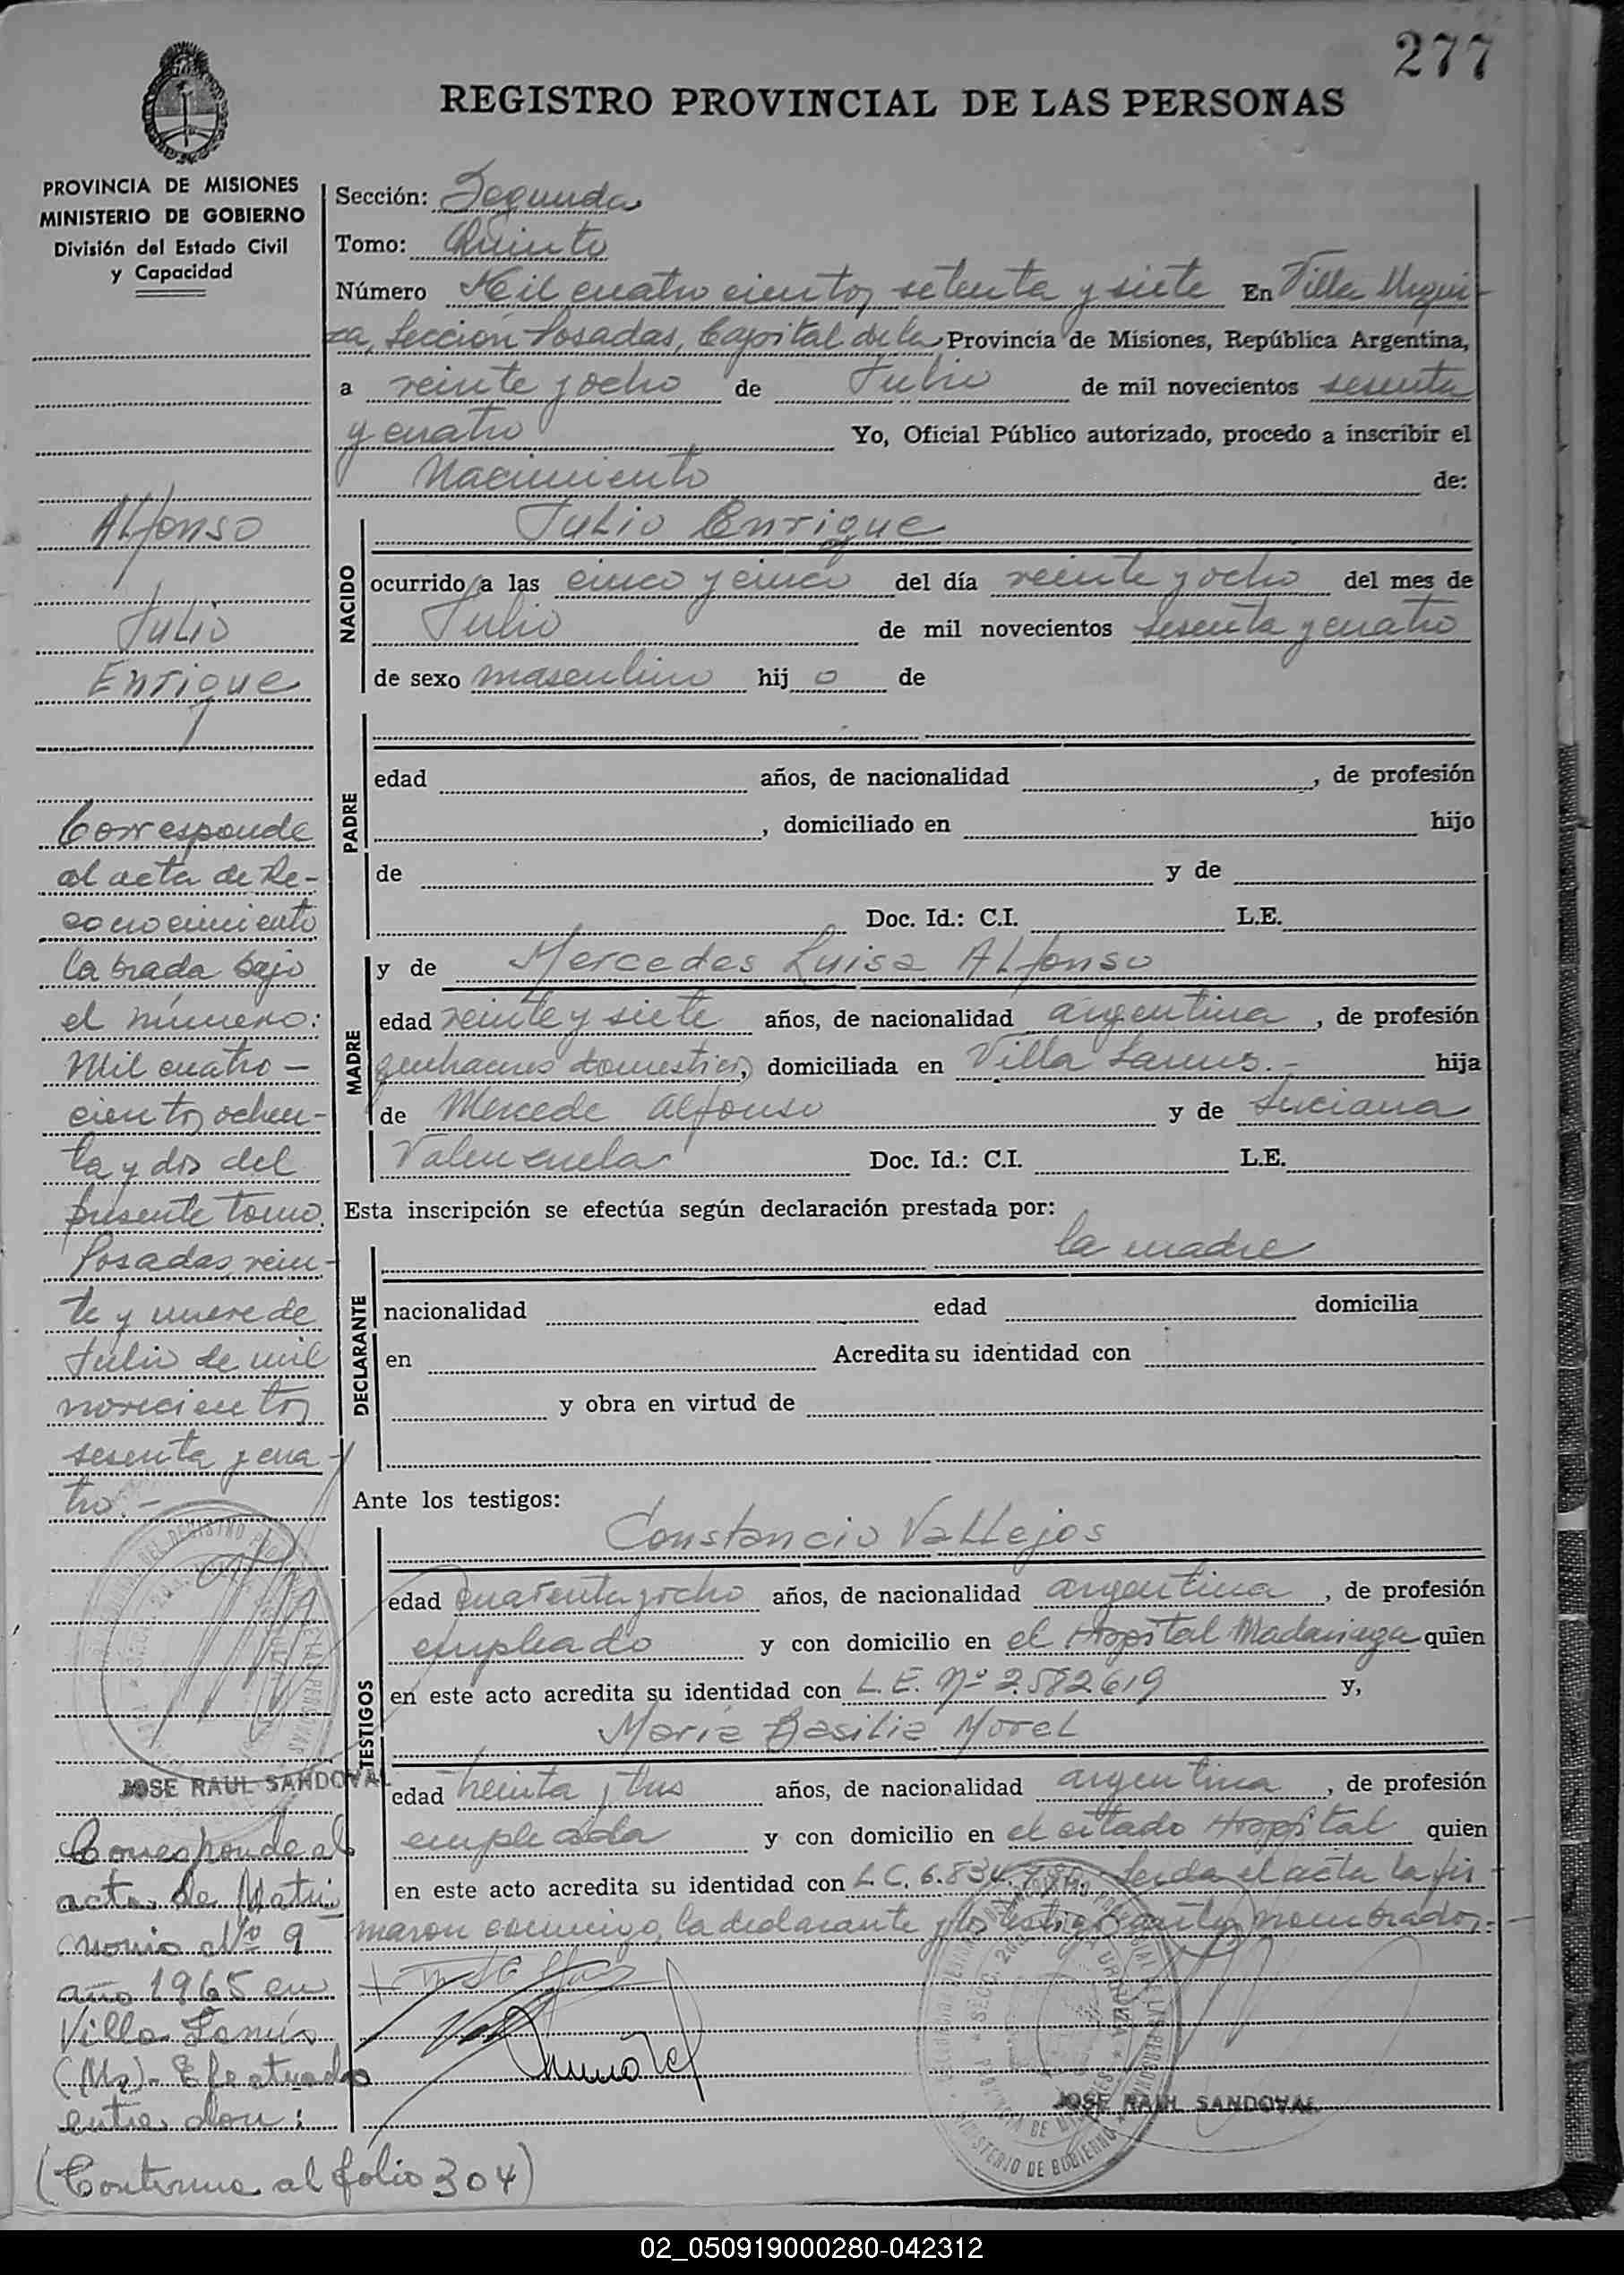 277
REGISTRO PROVINCIAL DE LAS PERSONAS
PROVINCIA DE MISIONES
MINISTERIO DE GOBIERNO
División del Estado Civil
y Capacidad
Alfonso
Julio
Enrique
Corresponde
al acta de Re-
conocimiento
labrada bajo
el número:
Mil cuatro-
cientos ochen-
ta y dos del
presente tomo.
Posadas, vein-
te y nueve de
Julio de mil
novecientos
sesenta y cua-
tro.-
JOSE RAUL SANDOVAL
Corresponde al
acta de Matri
monio Nº 9
año 1965 en
Villa Lanús
(Ms)- Efectuado
entre don:
(Continua al folio 304)
Sección: Segunda
Tomo: Quinto
Número Mil cuatro cientos setenta y siete En Villa Urqui-
za, Sección Posadas, Capital de la Provincia de Misiones, República Argentina,
a veinte y ocho de Julio de mil novecientos sesenta
y cuatro Yo, Oficial Público autorizado, procedo a inscribir el
Nacimiento de:
NACIDO
Julio Enrique
ocurrido a las cinco y cinco del día veinte y ocho del mes de
Julio de mil novecientos sesenta y cuatro
de sexo masculino hijo de
PADRE
edad años, de nacionalidad , de profesión
, domiciliado en hijo
de y de
Doc. Id.: C.I. L.E.
MADRE
y de Mercedes Luisa Alfonso
edad veinte y siete años, de nacionalidad argentina, de profesión
domesticos, domiciliada en Villa Lanus.- hija
de Mercede Alfonso y de Luciana
Valenzuela Doc. Id.: C.I. L.E.
Esta inscripción se efectúa según declaración prestada por:
DECLARANTE
la madre
nacionalidad edad domicilia
en Acredita su identidad con
y obra en virtud de
Ante los testigos:
TESTIGOS
Constancio Vallejos
edad cuarenta y ocho años, de nacionalidad argentina, de profesión
empleado y con domicilio en el Hospital Madariaga quien
en este acto acredita su identidad con L.E. Nº 2.582.619 y,
Maria Basilia Morel
edad treinta y tres años, de nacionalidad argentina, de profesión
empleada y con domicilio en el citado Hospital quien
en este acto acredita su identidad con L.C. 6.834. Leida el acta la fir-
maron conmigo, la declarante y los testigos nombrados.-
JOSE RAUL SANDOVAL
02_050919000280-042312